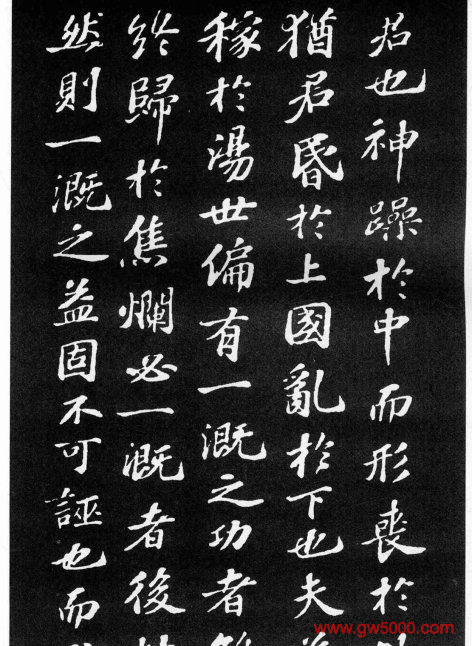 君也神躁於中而形喪於
猶君昬於上國亂於下也夫
稼於湯世偏有一溉之功者
終歸於焦爛必一溉者後
然則一溉之益固不可誣也而
www.gw5000.com